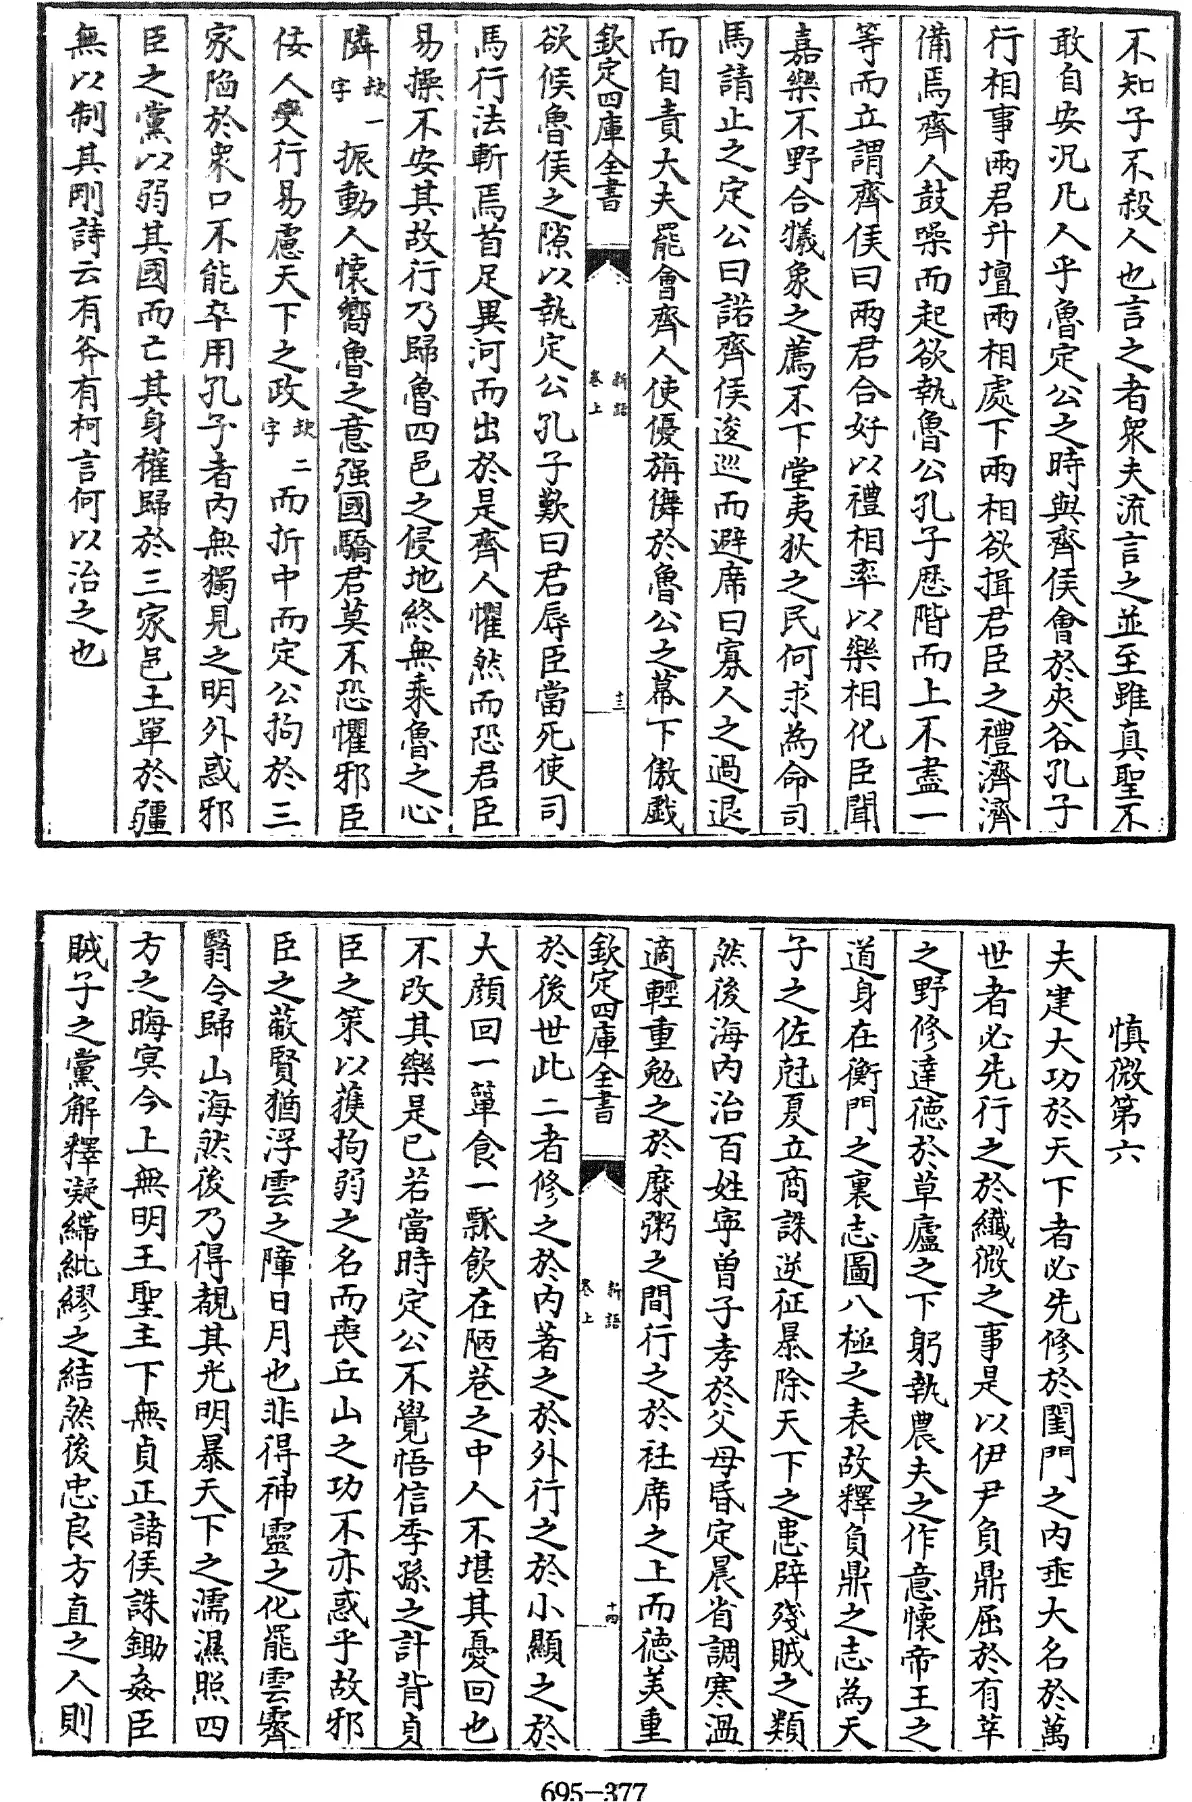 不知子不殺人也言之者衆夫流言之並至雖真聖不
敢自安况凡人乎魯定公之時與齊侯會於夾谷孔子
行相事兩君升壇兩相處下兩相欲揖君臣之禮濟濟
備焉齊人鼓噪而起欲執魯公孔子歴階而上不盡一
等而立謂齊侯曰兩君合好以禮相率以樂相化臣聞
嘉樂不野合犧象之薦不下堂夷狄之民何求為命司
馬請止之定公曰諾齊侯逡巡而避席曰寡人之過退
而自責大夫罷會齊人使優旃儛於魯公之幕下傲戯
欽定四庫全書
新語
卷上
十三
欲候魯侯之隙以執定公孔子歎曰君辱臣當死使司
馬行法斬焉首足異河而出於是齊人懼然而恐君臣
易操不安其故行乃歸魯四邑之侵地終無乘魯之心
隣缺一字振動人懷嚮魯之意强國驕君莫不恐懼邪臣
佞人變行易慮天下之政缺二字而折中而定公拘於三
家陷於衆口不能卒用孔子者内無獨見之明外惑邪
臣之黨以弱其國而亡其身權歸於三家邑土單於疆
無以制其剛詩云有斧有柯言何以治之也
慎微第六
夫建大功於天下者必先修於閨門之内垂大名於萬
世者必先行之於纎微之事是以伊尹負鼎屈於有莘
之野修達徳於草廬之下躬執農夫之作意懷帝王之
道身在衡門之裏志圖八極之表故釋負鼎之志為天
子之佐尅夏立商誅逆征暴除天下之患辟殘賊之類
然後海内治百姓寧曽子孝於父母昏定晨省調寒温
適輕重勉之於糜粥之間行之於袵席之上而徳美重
欽定四庫全書
新語
卷上
十四
於後世此二者修之於内著之於外行之於小顯之於
大顔回一簞食一瓢飲在陋巷之中人不堪其憂回也
不改其樂是已若當時定公不覺悟信季孫之計背貞
臣之策以獲拘弱之名而喪丘山之功不亦惑乎故邪
臣之蔽賢猶浮雲之障日月也非得神靈之化罷雲霽
翳令歸山海然後乃得覩其光明暴天下之濡濕照四
方之晦冥今上無明王聖主下無貞正諸侯誅鋤姦臣
賊子之黨解釋凝㵣紕繆之結然後忠良方直之人則
695-377